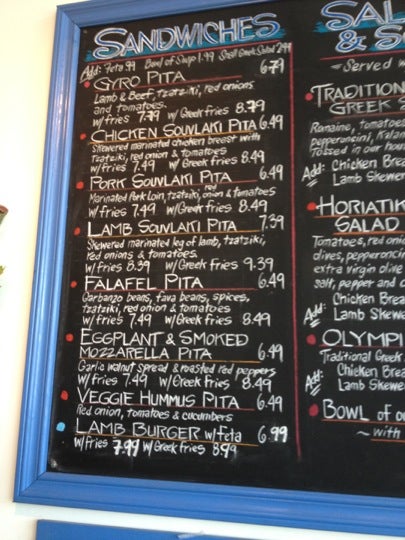 SANDWICHES
Add: Feta .99 Bowl of Soup 1.99 Small Greek Salad 2.99
GYRO PITA 6.79
Lamb & Beef, tzatziki, red onions
and tomatoes.
w/fries 7.79 w/Greek fries 8.79
CHICKEN SOUVLAKI PITA 6.49
Skewered marinated chicken breast with
tzatziki, red onion & tomatoes
w/fries 7.49 w/Greek fries 8.49
PORK SOUVLAKI PITA 6.49
Marinated Pork Loin, tzatziki, red onion & tomatoes
w/fries 7.49 w/Greek fries 8.49
LAMB SOUVLAKI PITA 7.39
Skewered marinated leg of lamb, tzatziki,
red onions & tomatoes.
w/fries 8.39 w/Greek fries 9.39
FALAFEL PITA 6.49
Garbanzo beans, fava beans, spices,
tzatziki, red onion & tomatoes
w/fries 7.49 w/Greek fries 8.49
EGGPLANT & SMOKED
MOZZARELLA PITA 6.49
Garlic walnut spread & roasted red peppers
w/fries 7.49 w/Greek fries 8.49
VEGGIE HUMMUS PITA 6.49
Red onion, tomatoes & cucumbers
LAMB BURGER w/feta 6.99
w/fries 7.99 w/Greek fries 8.99
SAL
& S
~ Served w
TRADITION
GREEK S
Romaine, tomatoes
pepperoncini, Kalam
Tossed in our hous
Add: Chicken Brea
Lamb Skewer
HORIATIK
SALAD
Tomatoes, red onio
olives, pepperoncin
extra virgin olive
salt, pepper and o
Add: Chicken Brea
Lamb Skewe
OLYMPI
Traditional Greek
Add: Chicken Brea
Lamb Skewe
BOWL of ou
~ with